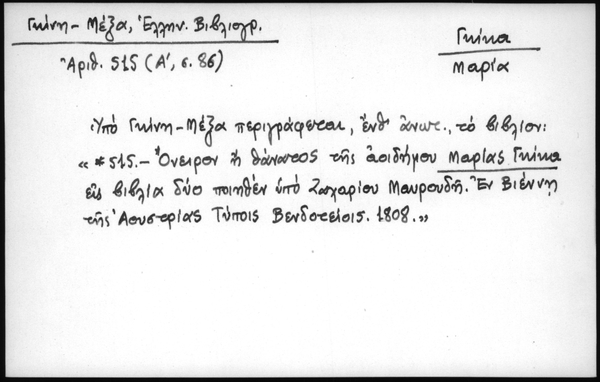 Γκίνη-Μέξα, Ἑλλην. Βιβλιογρ.
Ἀριθ. 515 (Α', σ. 86)
Γκίκα
Μαρία
Ὑπό Γκίνη-Μέξα περιγράφεται, ἔνθ' ἀνωτ., τό βιβλίον:
« *515.- Ὄνειρον ἤ θάνατος τῆς ἀοιδήμου Μαρίας Γκίκα
εἰς βιβλία δύο ποιηθέν ὑπό Ζαχαρίου Μαυρουδῆ. Ἐν Βιέννῃ
τῆς Ἀουστρίας Τύποις Βενδοτείοις. 1808.»